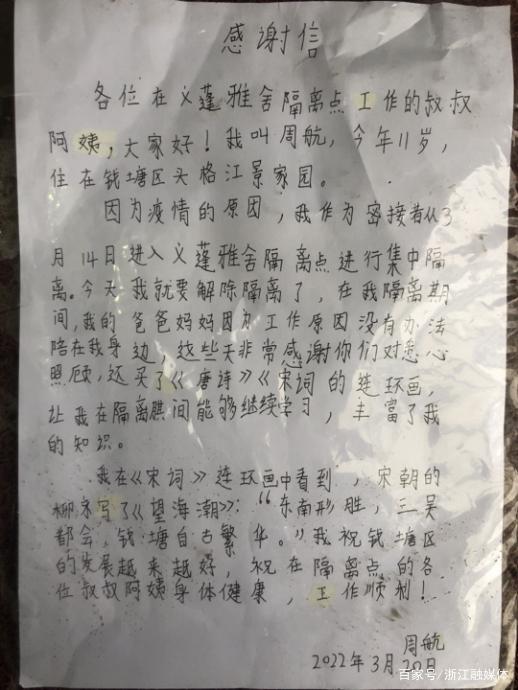 感谢信
各位在义蓬雅舍隔离点工作的叔叔
阿姨，大家好！我叫周航，今年11岁，
住在钱塘区头格江景家园。
因为疫情的原因，我作为密接者从3
月14日进入义蓬雅舍隔离点进行集中隔
离。今天我就要解除隔离了，在我隔离期
间，我的爸爸妈妈因为工作原因没有办法
陪在我身边，这些天非常感谢你们对悉心
照顾，还买了《唐诗》《宋词的连环画，
让我在隔离期间能够继续学习，丰富了我
的知识。
我在《宋词》连环画中看到，宋朝的
柳永写了《望海潮》：“东南形胜，三吴
都会，钱塘自古繁华。”我祝钱塘区
的发展越来越好，祝在隔离点的各
位叔叔阿姨身体健康，工作顺利！
周航
2022年3月20日
百家号/浙江融媒体